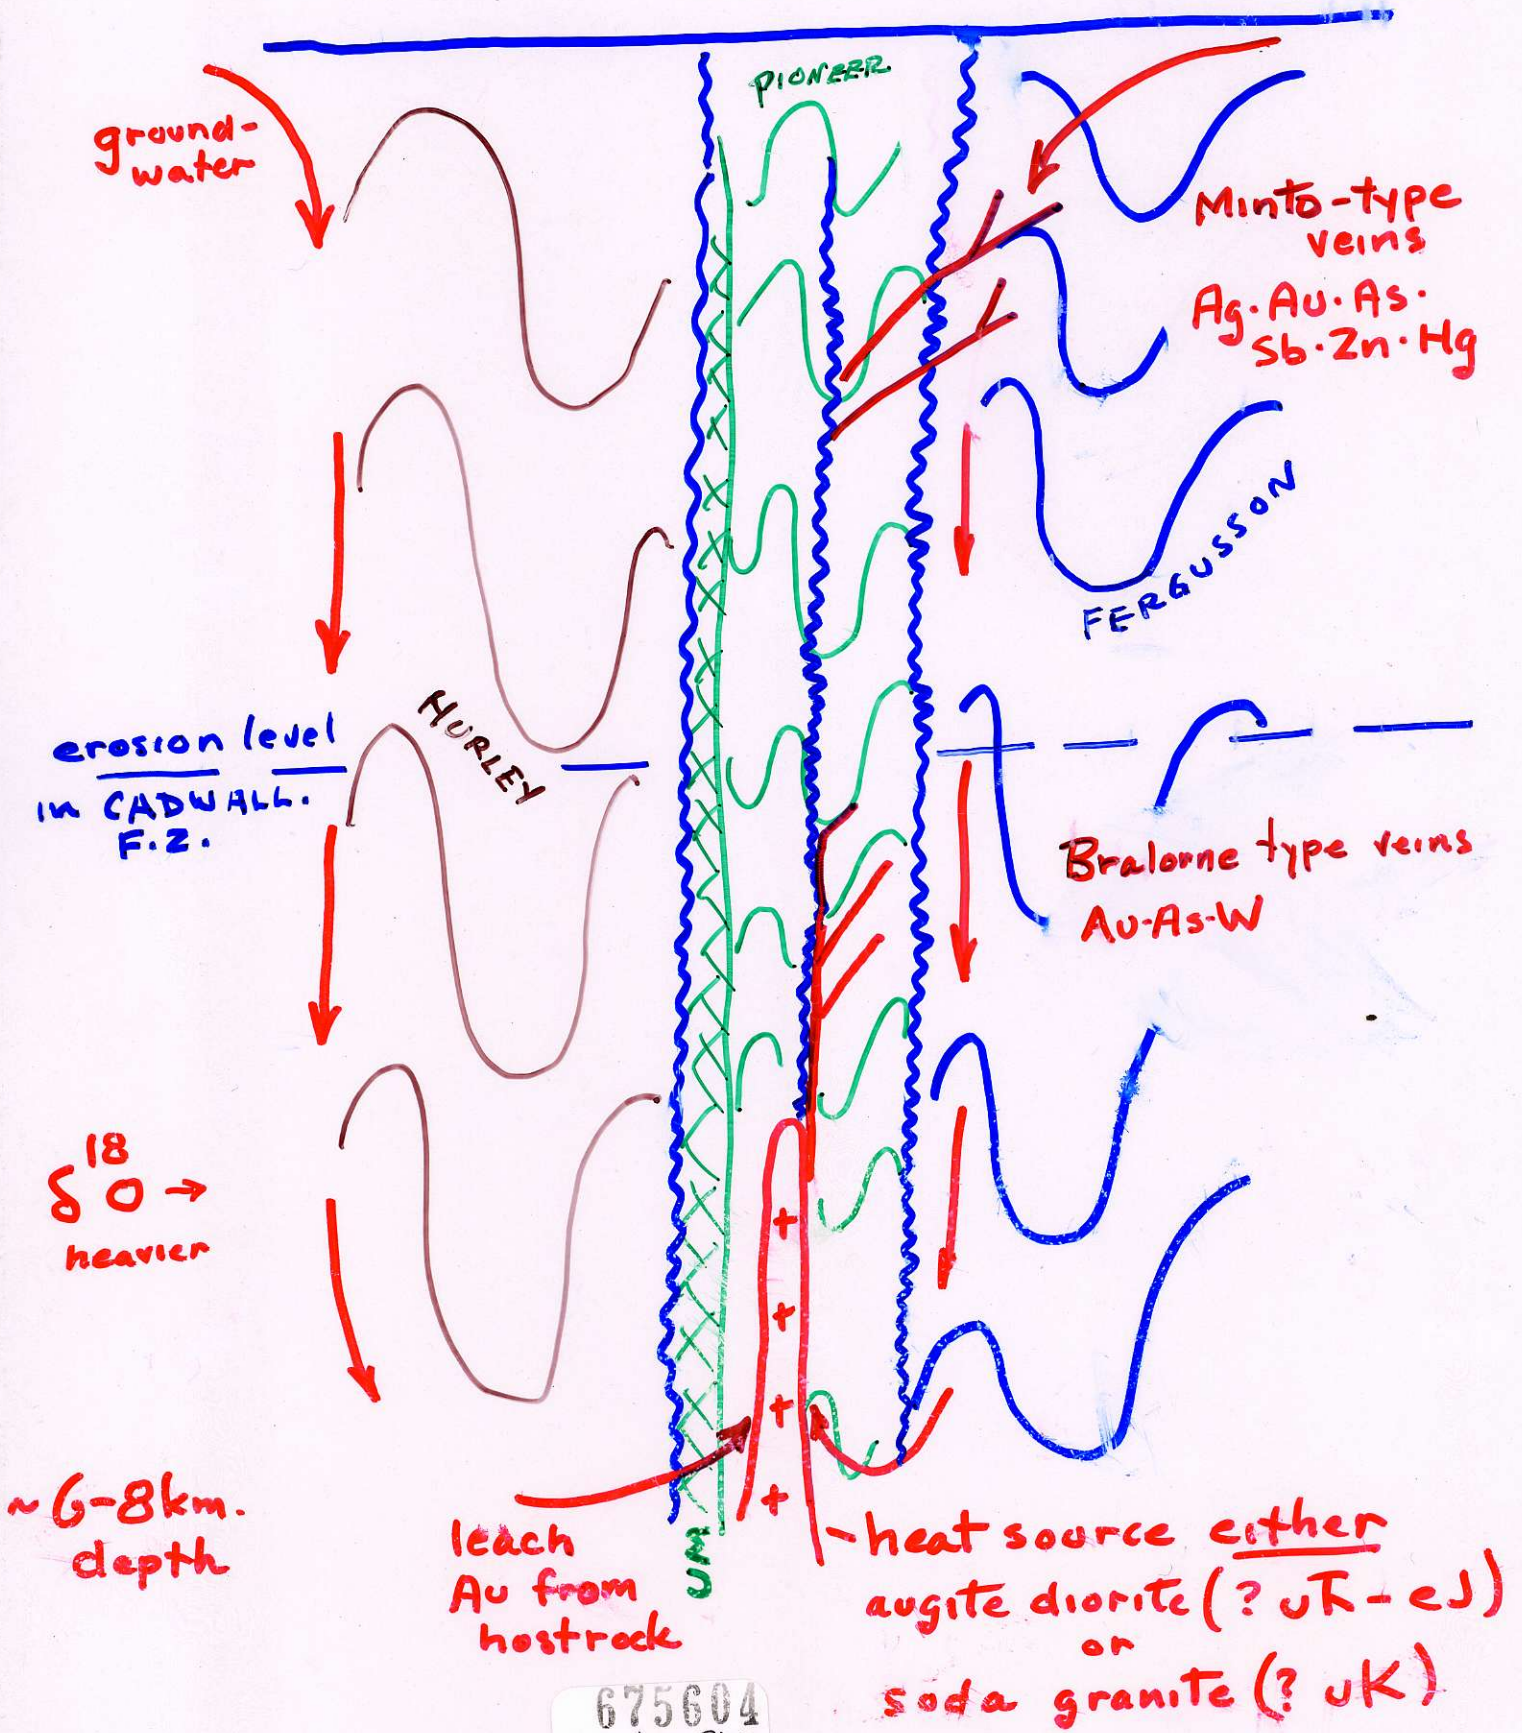 PIONEER
ground-
water
Minto-type
veins
Ag·Au·As·
Sb·Zn·Hg
FERGUSSON
HURLEY
erosion level
in CADWALL.
F.Z.
Bralorne type veins
Au-As-W
δ18O →
heavier
~6-8km.
depth
leach
Au from
hostrock
UM
heat source either
augite diorite (? uTR - eJ)
or
soda granite (? uK)
675604